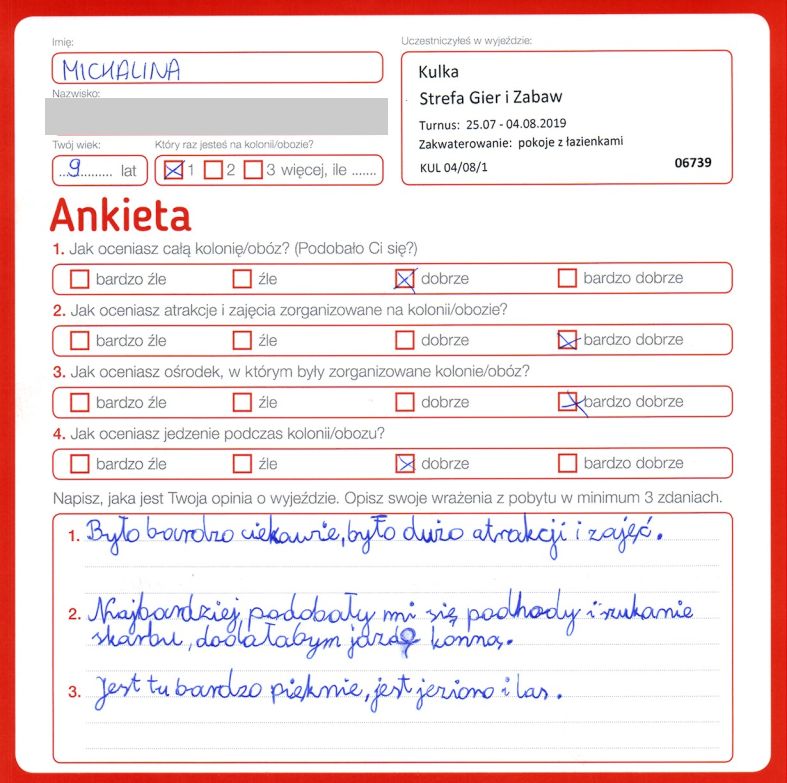 Imię:
MICHALINA
Nazwisko:
Twój wiek:
9 lat
Który raz jesteś na kolonii/obozie?
1 2 3 więcej, ile .......
Uczestniczyłeś w wyjeździe:
Kulka
Strefa Gier i Zabaw
Turnus: 25.07 - 04.08.2019
Zakwaterowanie: pokoje z łazienkami
KUL 04/08/1 06739
Ankieta
1. Jak oceniasz całą kolonię/obóz? (Podobało Ci się?)
bardzo źle źle dobrze bardzo dobrze
2. Jak oceniasz atrakcje i zajęcia zorganizowane na kolonii/obozie?
bardzo źle źle dobrze bardzo dobrze
3. Jak oceniasz ośrodek, w którym były zorganizowane kolonie/obóz?
bardzo źle źle dobrze bardzo dobrze
4. Jak oceniasz jedzenie podczas kolonii/obozu?
bardzo źle źle dobrze bardzo dobrze
Napisz, jaka jest Twoja opinia o wyjeździe. Opisz swoje wrażenia z pobytu w minimum 3 zdaniach.
1. Było bardzo ciekawie, było dużo atrakcji i zajęć.
2. Najbardziej podobały mi się podhody i szukanie
skarbu, dodałabym jazdę konną.
3. Jest tu bardzo pięknie, jest jezioro i las.